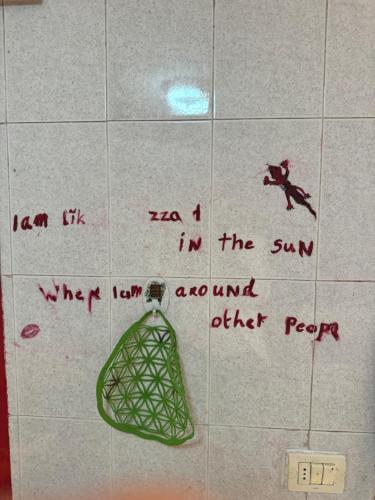 Iam lik     zza d
in the sun
When Iam around
other Peopa